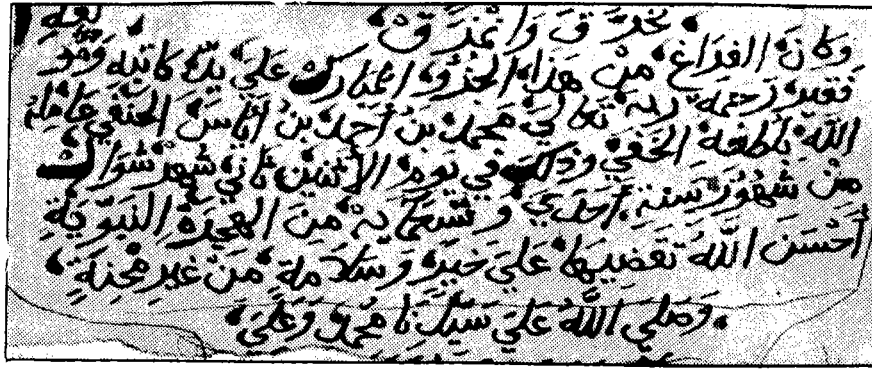 تخرق وانمزق
وكان الفراغ من هذا الجزؤ المبارك على يد كاتبه وهو
فقير رحمة ربه تعالى محمد بن أحمد بن أناس الحنفي عامله
الله بلطفه الخفي وذلك في يوم الاثنين ثاني شهر شوال
من شهور سنة احدى وتسعماية من الهجرة النبوية
أحسن الله تقضيها على خير وسلامة من غير محنة
وصلى الله على سيدنا محمد وعلى